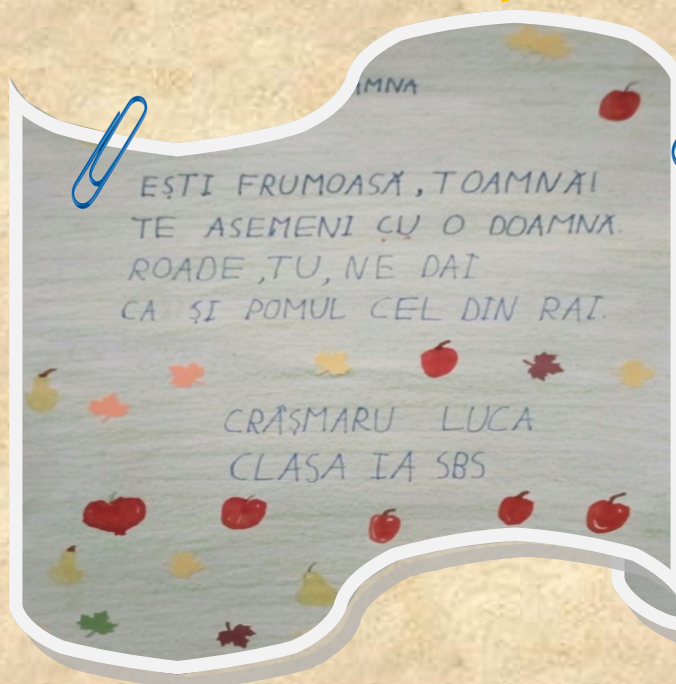 AMNA
EȘTI FRUMOASĂ, TOAMNĂ!
TE ASEMENI CU O DOAMNĂ.
ROADE, TU, NE DAI
CA ȘI POMUL CEL DIN RAI.
CRÂȘMARU LUCA
CLASA IA SBS